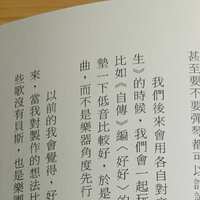 甚至要不要彈
我們後來會用各自對
生》的時候，我們會一起玩
比如《自傳》編〈好好〉的
墊一下低音比較好，於是
曲，而不是樂器角度先行
以前的我會覺得，好
來，當我對製作的想法比
些歌沒有貝斯，也是樂